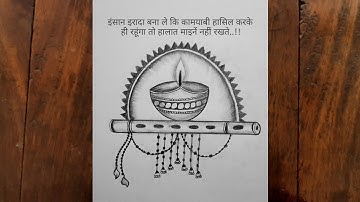 इंसान इरादा बना ले कि कामयाबी हासिल करके
ही रहूंगा तो हालात माइने नहीं रखते..!!